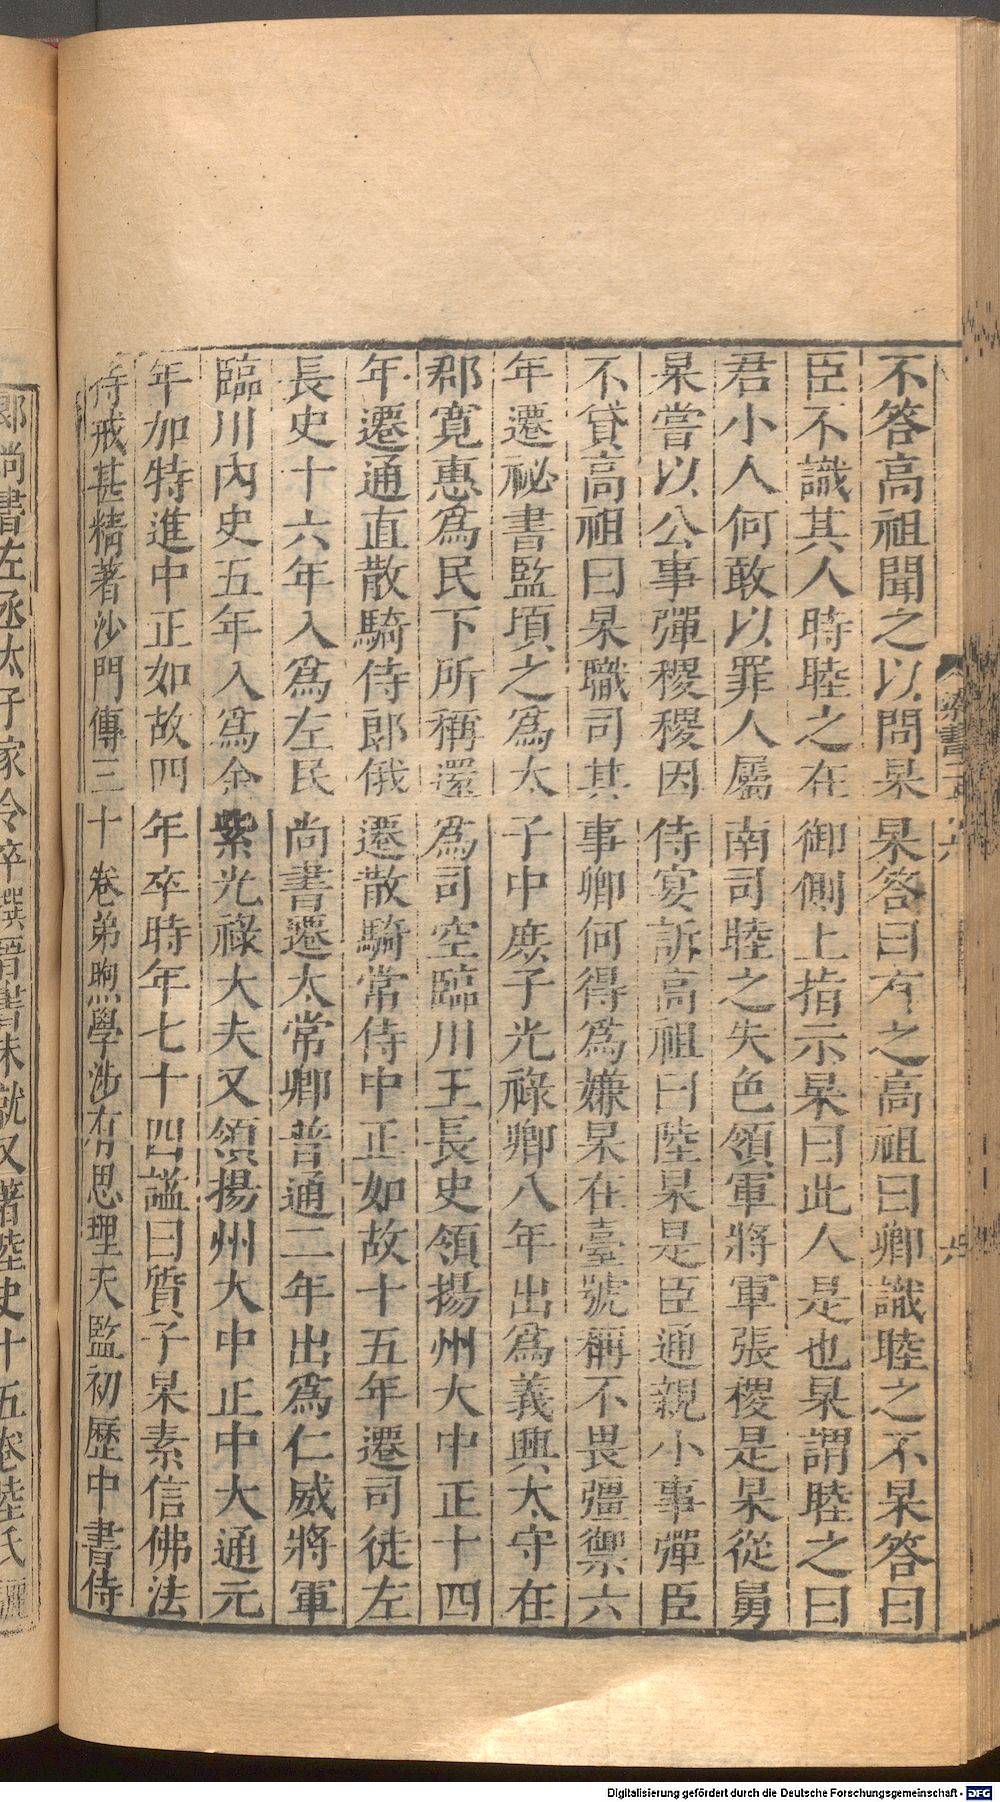 不答高祖聞之以問杲杲答曰有之高祖曰卿識睦之不杲答曰
臣不識其人時睦之在御側上指示杲曰此人是也杲謂睦之曰
君小人何敢以罪人屬南司睦之失色領軍將軍張稷是杲從舅
杲嘗以公事彈稷稷因侍宴訴高祖曰陸杲是臣通親小事彈臣
不貸高祖曰杲職司其事卿何得爲嫌杲在臺號稱不畏彊禦六
年遷祕書監頃之爲太子中庶子光祿卿八年出爲義興太守在
郡寬惠爲民下所稱還爲司空臨川王長史領揚州大中正十四
年遷通直散騎侍郎俄遷散騎常侍中正如故十五年遷司徒左
長史十六年入爲左民尚書遷太常卿普通二年出爲仁威將軍
臨川內史五年入爲金紫光祿大夫又領揚州大中正中大通元
年加特進中正如故四年卒時年七十四諡曰質子杲素信佛法
持戒甚精著沙門傳三十卷弟煦學涉有思理天監初歷中書侍
郎尚書左丞太子家令卒撰晉書未就又著陸史十五卷陸氏驪
梁書二 六
Digitalisierung gefördert durch die Deutsche Forschungsgemeinschaft - DFG